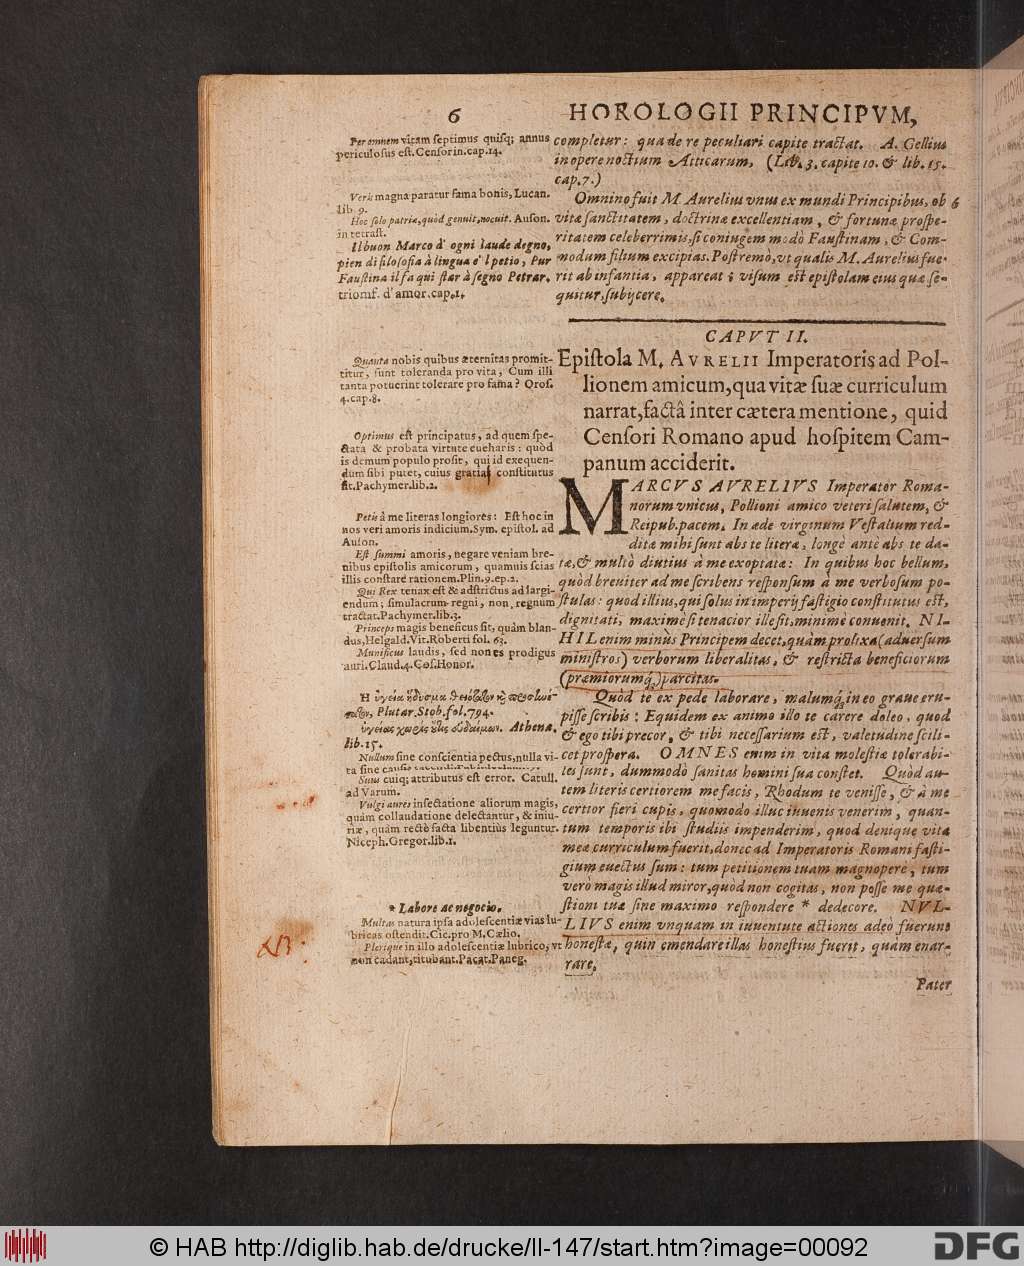 6
HOROLOGII PRINCIPVM,
Per omnem vitam septimus quisq; annus
periculosus est. Censorin. cap. 14.
Veris magna paratur fama bonis, Lucan.
lib 9.
Hoc solo patriæ, quòd genuit, nocuit. Auson.
in tetrast.
Il buon Marco d' ogni laude degno,
pien di filosofia à lingua e' l petio, Pur
Faustina il fa qui star à segno Petrar.
triomf. d' amor. cap. 1.
Quanta nobis quibus æternitas promit-
titur, sunt toleranda pro vita, Cum illi
tanta potuerint tolerare pro fama? Oros.
4. cap. 8.
Optimus est principatus, ad quem spe-
ctata & probata virtute eueharis: quòd
is demum populo prosit, qui id exequen-
dum sibi putet, cuius gratias constitutus
sit. Pachymer. lib. 2.
Petis à me literas longiores: Est hoc in
nos veri amoris indicium. Sym. epistol. ad
Auson.
Est summi amoris, negare veniam bre-
uibus epistolis amicorum, quamuis scias
illis constare rationem. Plin. 9. ep. 2.
Qui Rex tenax est & adstrictus ad largi-
endum; simulacrum regni, non regnum
tractat. Pachymer. lib. 3.
Princeps magis beneficus sit, quàm blan-
dus, Helgald. Vit. Roberti fol. 63.
Munificus laudis, sed non es prodigus
auri. Claud. 4. Cos. Honor.
Plutar. Stob. fol. 794.
Athena.
lib. 15.
Nullum sine conscientia pectus, nulla vi-
ta sine
Suus cuiq; attributus est error. Catull.
ad Varum.
Vulgi aures insectatione aliorum magis,
quàm collaudatione delectantur, & iniu-
riæ, quàm rectè facta libentiùs leguntur.
Niceph. Gregor. lib. 1.
* Labore ac negocio.
Multas natura ipsa adolescentiæ vias lu-
bricas ostendit. Cic. pro M. Cælio.
Plerique in illo adolescentiæ lubrico, vt
non cadant, titubant. Pacat. Paneg.
NB:
completur: qua de re peculiari capite tractat. A. Gellius
in opere noctium Atticarum, (Lib. 3. capite 10. & lib. 15.
cap. 7.)
Omnino fuit M Aurelius vnus ex mundi Principibus, ob 6
vitæ sanctitatem, doctrinæ excellentiam, & fortunæ prospe-
ritatem celeberrimis, si coniugem modò Faustinam, & Com-
modum filium excipias. Postremò, vt qualis M. Aurelius fue-
rit ab infantia, appareat; visum est epistolam eius quæ se-
quitur, subijcere.
CAPVT II.
Epistola M. AVRELII Imperatoris ad Pol-
lionem amicum, qua vitæ suæ curriculum
narrat, factâ inter cætera mentione, quid
Censori Romano apud hospitem Cam-
panum acciderit.
MARCVS AVRELIVS Imperator Roma-
norum vnicus, Pollioni amico veteri salutem, &
Reipub. pacem. In æde virginum Vestalium red-
ditæ mihi sunt abs te literæ, longè antè abs te da-
tæ, & multò diutius à me exoptatæ: In quibus hoc bellum,
quòd breuiter ad me scribens responsum à me verbosum po-
stulas: quod illius, qui solus in imperij fastigio constitutus est,
dignitati, maximè si tenacior ille sit, minimè conuenit. NI-
HIL enim minùs Principem decet, quàm prolixa (aduersum
ministros) verborum liberalitas, & restricta beneficiorum
(præmiorumq́;) parcitas.
Quòd te ex pede laborare, malumq́; in eo graue eru-
pisse scribis: Equidem ex animo illo te carere doleo, quod
& ego tibi precor, & tibi necessarium est, valetudine scili-
cet prospera. OMNES enim in vita molestiæ tolerabi-
les sunt, dummodò sanitas homini sua constet. Quòd au-
tem literis certiorem me facis, Rhodum te venisse, & à me
certior fieri cupis, quomodo illuc iuuenis venerim, quan-
tum temporis ibi studiis impenderim, quod denique vitæ
meæ curriculum fuerit, donec ad Imperatoris Romani fasti-
gium euectus sum: tum petitionem tuam magnoperè, tum
verò magis illud miror, quòd non cogitas, non posse me quæ-
stioni tuæ sine maximo respondere * dedecore. NVL-
LIVS enim vnquam in iuuentute actiones adeò fuerunt
honestæ, quin emendare illas honestius fuerit, quàm enar-
rare.
Pater
© HAB http://diglib.hab.de/drucke/li-147/start.htm?image=00092
DFG